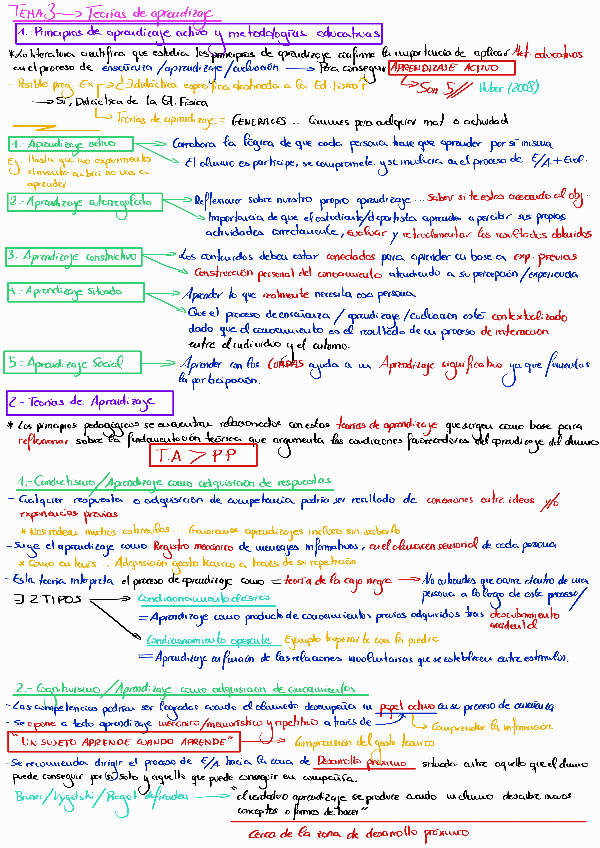 TEMA 3 → Teorías de aprendizaje
1. Principios de aprendizaje activo y metodologías educativas
* La literatura científica que estudia los principios de aprendizaje confirma la importancia de aplicar Met. educativas
en el proceso de enseñanza/aprendizaje/evaluación → Para conseguir APRENDIZAJE ACTIVO
- Posible preg. Ex → ¿∃ didáctica específica destinada a la Ed. Física?
→ Son 5// Huber (2008)
→ Sí, Didáctica de la Ed. Física
↳ Teorías de aprendizaje = GENERALES .. Comunes para cualquier mat. o actividad
1.- Aprendizaje activo → Corrobora la lógica de que cada persona tiene que aprender por sí misma
Ej: Hasta que no experimento
→ El alumno es partícipe, se compromete y se involucra en el proceso de E/A + Eval.
aprender
2.- Aprendizaje autorregulado → Reflexionar sobre nuestro propio aprendizaje ... Saber si te estás acercando al obj.
↳ Importancia de que el estudiante/deportista aprenda a percibir sus propias
actividades correctamente, evaluar y retroalimentar los resultados obtenidos
3. Aprendizaje constructivo → Los contenidos deben estar conectados para aprender en base a exp. previas
↳ Construcción personal del conocimiento atendiendo a su percepción/experiencia
4.- Aprendizaje situado → Aprender lo que realmente necesita esa persona
↳ Que el proceso de enseñanza/aprendizaje/evaluación esté contextualizado
dado que el conocimiento es el resultado de un proceso de interacción
entre el individuo y el entorno.
5.- Aprendizaje Social → Aprender con los COMPAS ayuda a un Aprendizaje significativo ya que fomentas
la participación.
2.- Teorías de Aprendizaje
* Los principios pedagógicos se encuentran relacionados con estas teorías de aprendizaje que surgen como base para
reflexionar sobre la fundamentación teórica que argumenta las condiciones favorecedoras del aprendizaje del alumno
T.A > P.P
1.- Conductismo/Aprendizaje como adquisición de respuestas
- Cualquier respuesta o adquisición de competencia podría ser resultado de conexiones entre ideas y/o
experiencias previas
* Nos rodean muchos estímulos .. Generamos aprendizajes incluso sin saberlo
- Surge el aprendizaje como Registro mecánico de mensajes informativos, en el almacén sensorial de cada persona
* Como en tenis .. Adquisición gesto técnico a través de su repetición
- Esta teoría interpreta el proceso de aprendizaje como = teoría de la caja negra → No entiendes que ocurre dentro de una
persona a lo largo de este proceso/
∃ 2 TIPOS → Condicionamiento clásico
= Aprendizaje como producto de conocimientos previos adquiridos tras descubrimiento
accidental
→ Condicionamiento operante Ejemplo tropezarte con la piedra
= Aprendizaje en función de las relaciones involuntarias que se establecen entre estímulos.
2.- Cognitivismo/Aprendizaje como adquisición de conocimientos
- Las competencias podrían ser logradas cuando el alumno desempeña un papel activo en su proceso de enseñanza
- Se opone a todo aprendizaje mecánico/memorístico y repetitivo a través de
↳ Comprender la información.
"UN SUJETO APRENDE CUANDO APRENDE" → Comprensión del gesto técnico
- Se recomienda dirigir el proceso de E/A hacia la zona de Desarrollo próximo situada entre aquello que el alumno
puede conseguir por (sí) solo y aquello que puede conseguir en compañía.
Bruner/Vygotski/Piaget defienden → "el verdadero aprendizaje se produce cuando un alumno descubre nuevos
conceptos o formas de hacer"
Cerca de la zona de desarrollo próximo